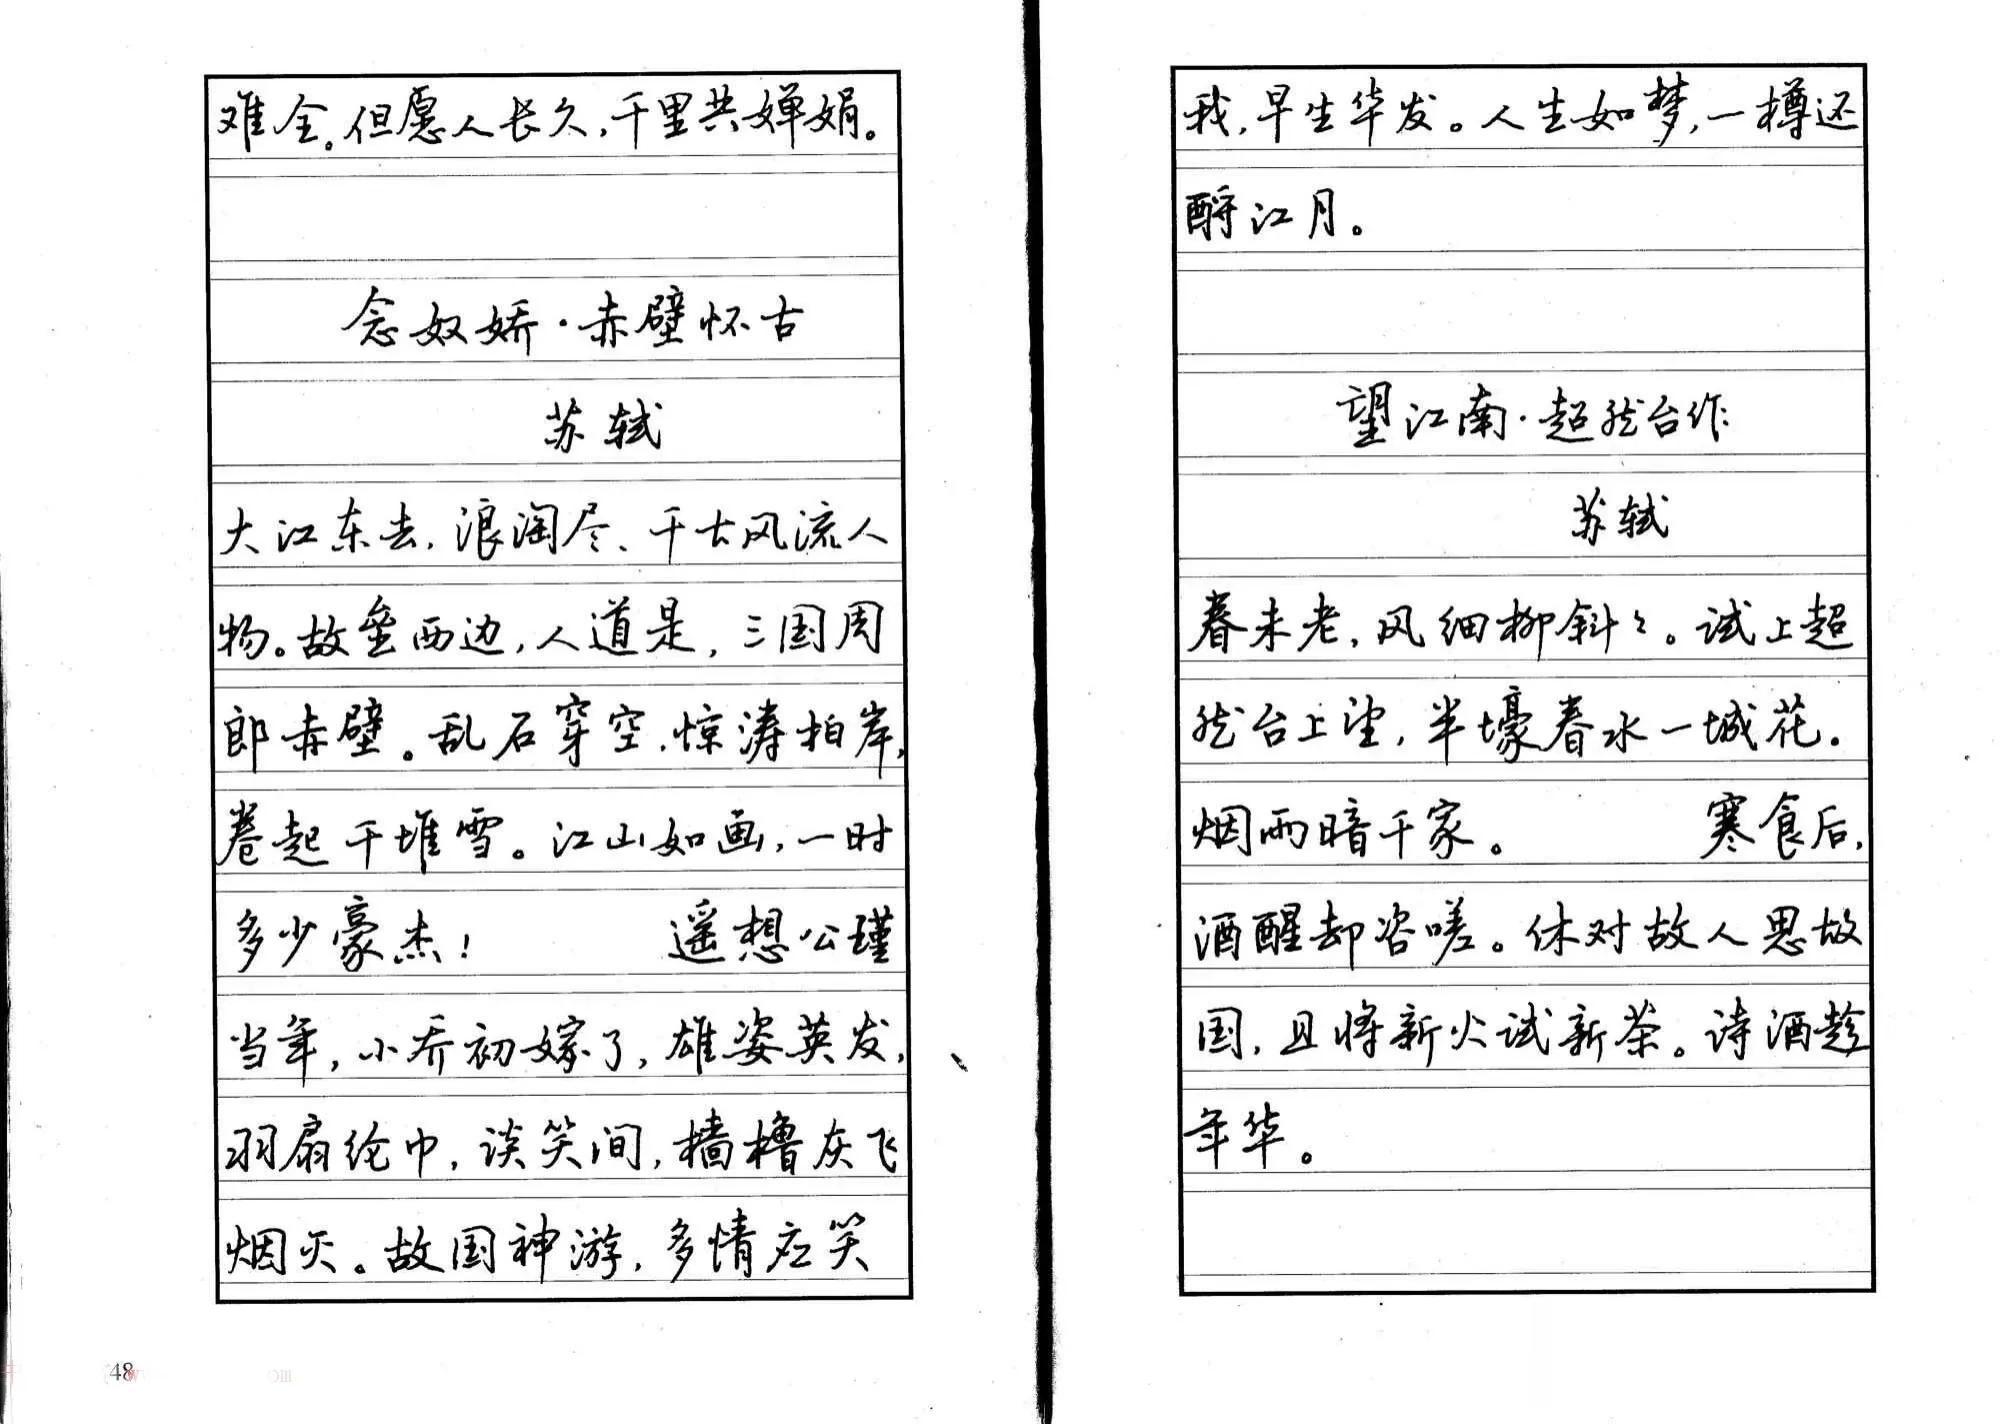 难全。但愿人长久，千里共婵娟。
念奴娇·赤壁怀古
苏轼
大江东去，浪淘尽、千古风流人
物。故垒西边，人道是，三国周
郎赤壁。乱石穿空，惊涛拍岸，
卷起千堆雪。江山如画，一时
多少豪杰！ 遥想公瑾
当年，小乔初嫁了，雄姿英发，
羽扇纶巾，谈笑间，樯橹灰飞
烟灭。故国神游，多情应笑
48
我，早生华发。人生如梦，一樽还
酹江月。
望江南·超然台作
苏轼
春未老，风细柳斜々。试上超
然台上望，半壕春水一城花。
烟雨暗千家。 寒食后，
酒醒却咨嗟。休对故人思故
国，且将新火试新茶。诗酒趁
年华。